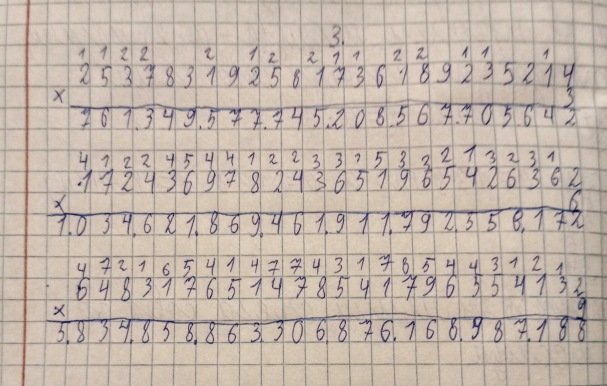 3.
1 1 2 2 2 1 2 2 1 1 2 2 1 1 1
2 5 3 7 8 3 1 9 2 5 8 1 7 3 6 1 8 9 2 3 5 2 1 4
x 3
7 6 1.3 4 9.5 7 7.7 4 5.2 0 8.5 6 7.7 0 5.6 4 2
4 1 2 2 4 5 4 4 1 2 2 3 3 1 5 3 2 2 1 3 2 3 1
1 7 2 4 3 6 9 7 8 2 4 3 6 5 1 9 6 5 4 2 6 3 6 2
x 6
1.0 3 4.6 2 1.8 6 9.4 6 1.9 1 1.7 9 2.5 5 8.1 7 2
4 7 2 1 6 5 4 1 4 7 7 4 3 1 7 8 5 4 4 3 1 2 1
6 4 8 3 1 7 6 5 1 4 7 8 5 4 1 7 9 6 5 5 4 1 3 2
x 9
5.8 3 4.8 5 8.8 6 3.3 0 6.8 7 6.1 6 8.9 8 7.1 8 8